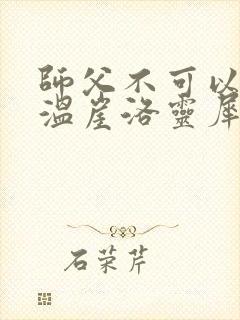 師父不可以
溫崖洛靈犀
石荣芹